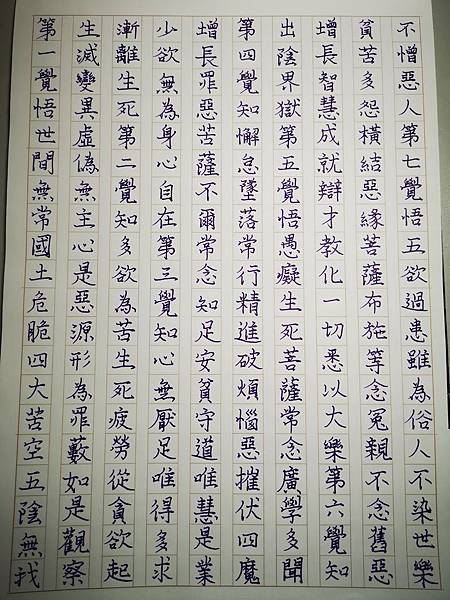 第一覺悟世間無常國土危脆四大苦空五陰無我
生滅變異虛偽無主心是惡源形為罪藪如是觀察
漸離生死第二覺知多欲為苦生死疲勞從貪欲起
少欲無為身心自在第三覺知心無厭足唯得多求
增長罪惡菩薩不爾常念知足安貧守道唯慧是業
第四覺知懈怠墜落常行精進破煩惱惡摧伏四魔
出陰界獄第五覺悟愚癡生死菩薩常念廣學多聞
增長智慧成就辯才教化一切悉以大樂第六覺知
貧苦多怨橫結惡緣菩薩布施等念冤親不念舊惡
不憎惡人第七覺悟五欲過患雖為俗人不染世樂